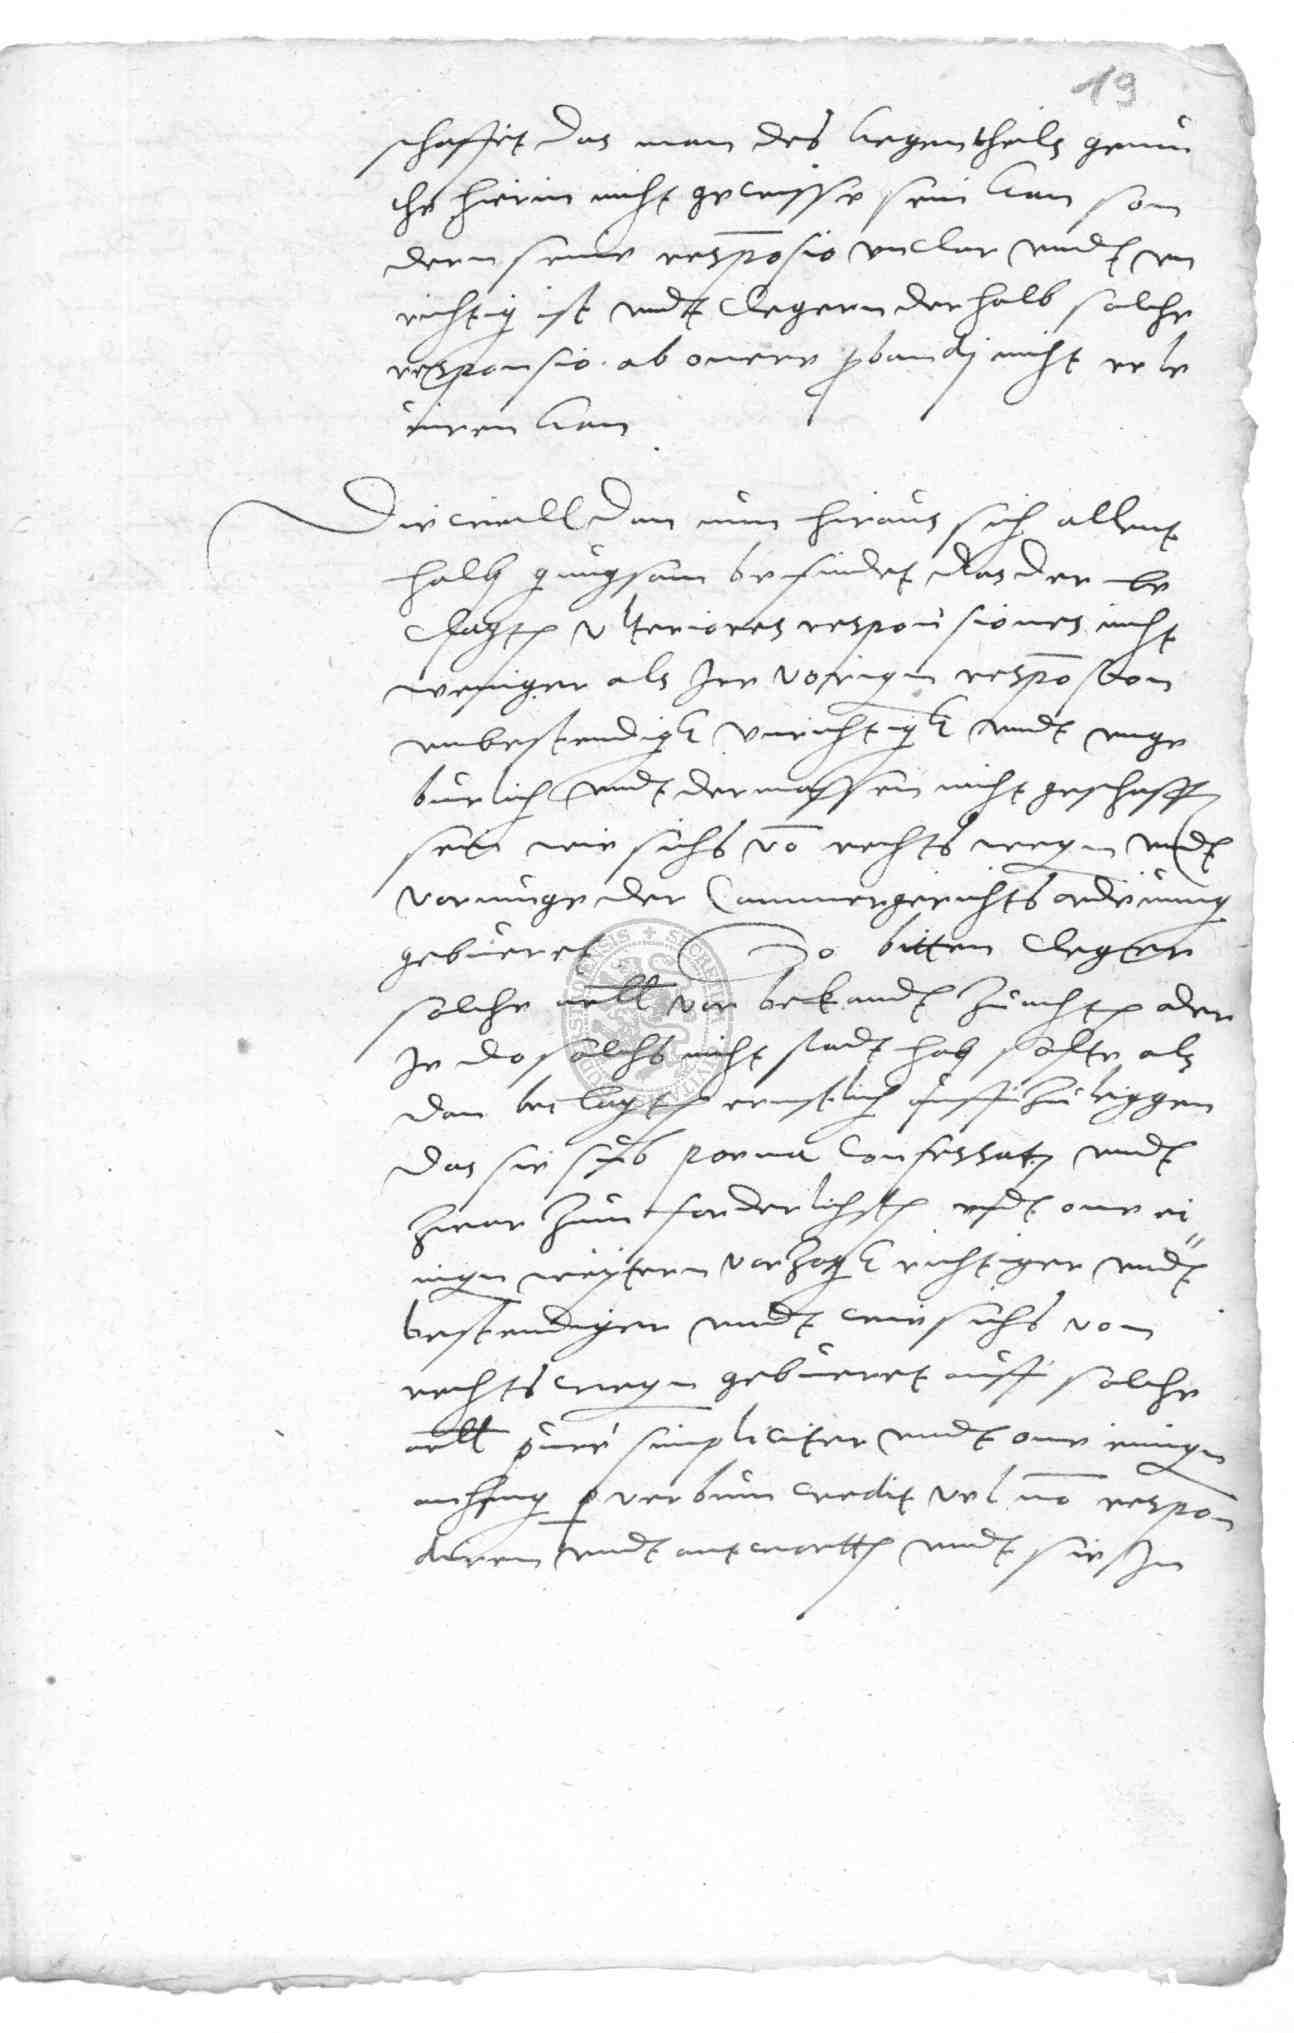 19
schaffet das man des Gegentheils gemu
the hierin nicht gewisse sein kan son
dern seine responsio unclar undt un
richtig ist undt Clegern derhalb solche
responsio ab onere probandj nicht rele
uiren kan
Die weill dan nun hiraus sich allent
halb gnugsam befindet das der be
clagten ulteriores responsiones nicht
weniger als Jre vorigen respons
unbestendig unrichtig undt unge
burlich undt dermassen nicht geschaffen
sein wie sichs von rechts wegen undt
vermuge der Cammergerichts ordenung
gebueret So bitten Cleger
solche artll vor bekandt zu achten oder
Je do solchs nicht stadt hab solte als
dan beclagten ernstlich auff zu leggen
das sie sub poena confessati undt
zwar zum forderlichsten undt one ei
nigen weytern vorzog richtiger undt
bestendiger undt wie sichs von
rechts wegen gebueret auff solche
artll pure simpliciter undt one einigen
anhang per verbum credit vel non respon
diren undt antwortten undt sie Jn